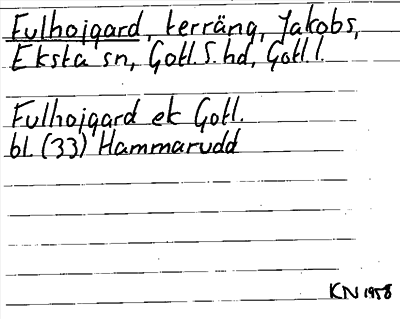 Fulhojgard, terräng, Jakobs,
Eksta sn, Gotl. S. hd, Gotl. l.
Fulhojgard ek Gotl.
bl. (33) Hammarudd
KN 1958